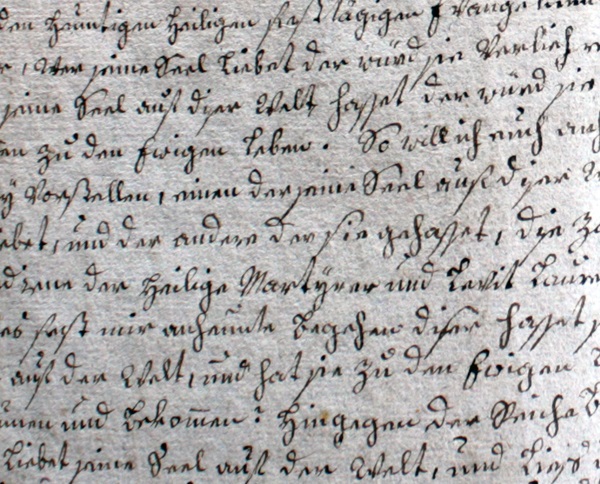 den heuntigen Heiligen fesstägigen Evange
wer seine Seel Liebet der würd sie Verliehr
seine Seel auf diser Welt hasset der würd sie
zu den Ewigen Leben. So will ich euch
Vorstellen, einen der seine Seel auf diser
und der andere der sie gehasset, die
der Heilige Martÿrer und Levit Laure
fest mir anheunte Begehen diser hasset
auf der Welt, und hat sie zu den Ewigen
und Bekommen? Hingegen der Reiche
Liebet seine Seel auf der Welt, und Lies